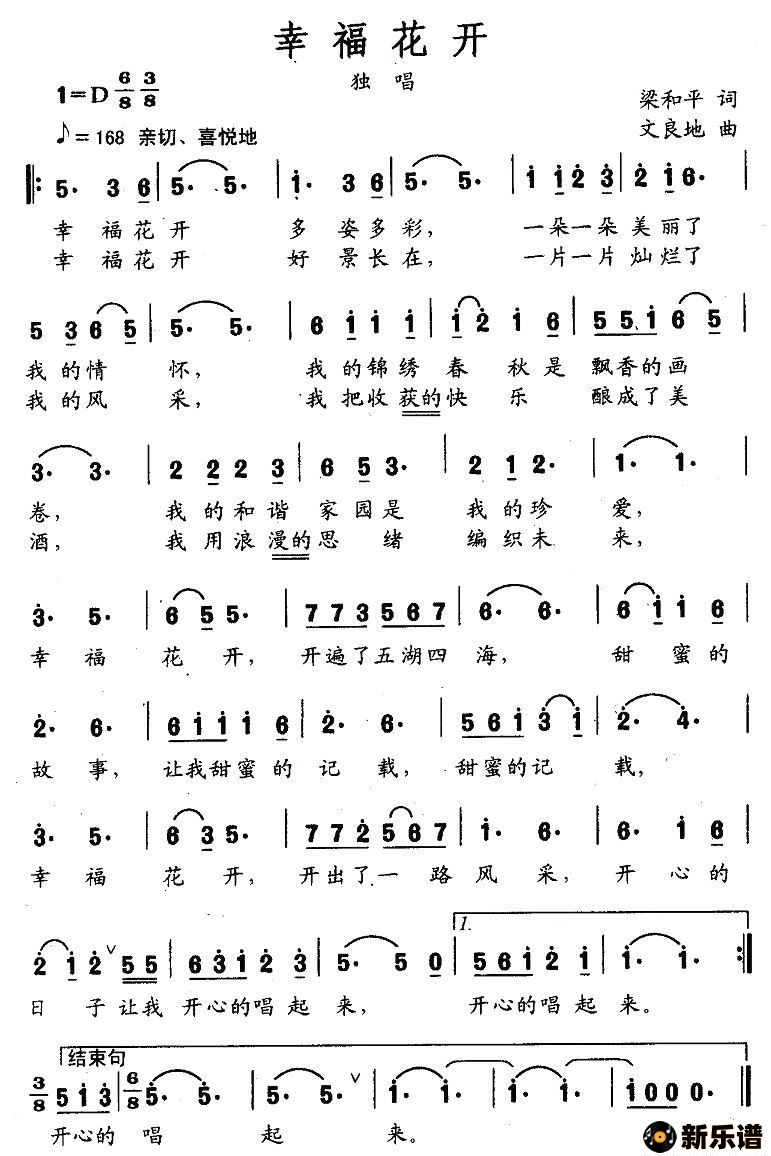 幸福花开
独唱
1=D 6/8 3/8
梁和平 词
♪=168 亲切、喜悦地
文良地 曲
𝄆 5. 3 6 | 5. 5. | i. 3 6 | 5. 5. | i i 2 3 | 2 i 6. |
幸 福花开 多 姿多彩, 一朵一朵美丽了
幸 福花开 好 景长在, 一片一片灿烂了
5 3 6 5 | 5. 5. | 6 i i i | i 2 i 6 | 5 5 i 6 5 |
我的情 怀, 我的锦绣春 秋是 飘香的画
我的风 采, 我把收获的快 乐 酿成了美
3. 3. | 2 2 2 3 | 6 5 3. | 2 1 2. | 1. 1. |
卷, 我的和谐 家园是 我的珍 爱,
酒, 我用浪漫的思 绪 编织未 来,
3. 5. | 6 5 5. | 7 7 3 5 6 7 | 6. 6. | 6 i i 6 |
幸 福 花 开, 开遍了五湖四 海, 甜 蜜的
2. 6. | 6 i i i 6 | 2. 6. | 5 6 i 3 i | 2. 4. |
故 事, 让我甜蜜的 记 载, 甜蜜的记 载,
3. 5. | 6 3 5. | 7 7 2 5 6 7 | i. 6. | 6. i 6 |
幸 福 花 开, 开出了一 路 风 采, 开 心的
1.
2 i 2 ∨ 5 5 | 6 3 i 2 3 | 5. 5 0 | 5 6 i 2 i | i. i. 𝄇
日 子让我 开心的唱起 来, 开心的唱起 来。
结束句
3/8 5 i 3 | 6/8 5. 5. | 5. 5. ∨ | i. i. | i. i. | i 0 0 0. ‖
开心的 唱 起 来。
新乐谱